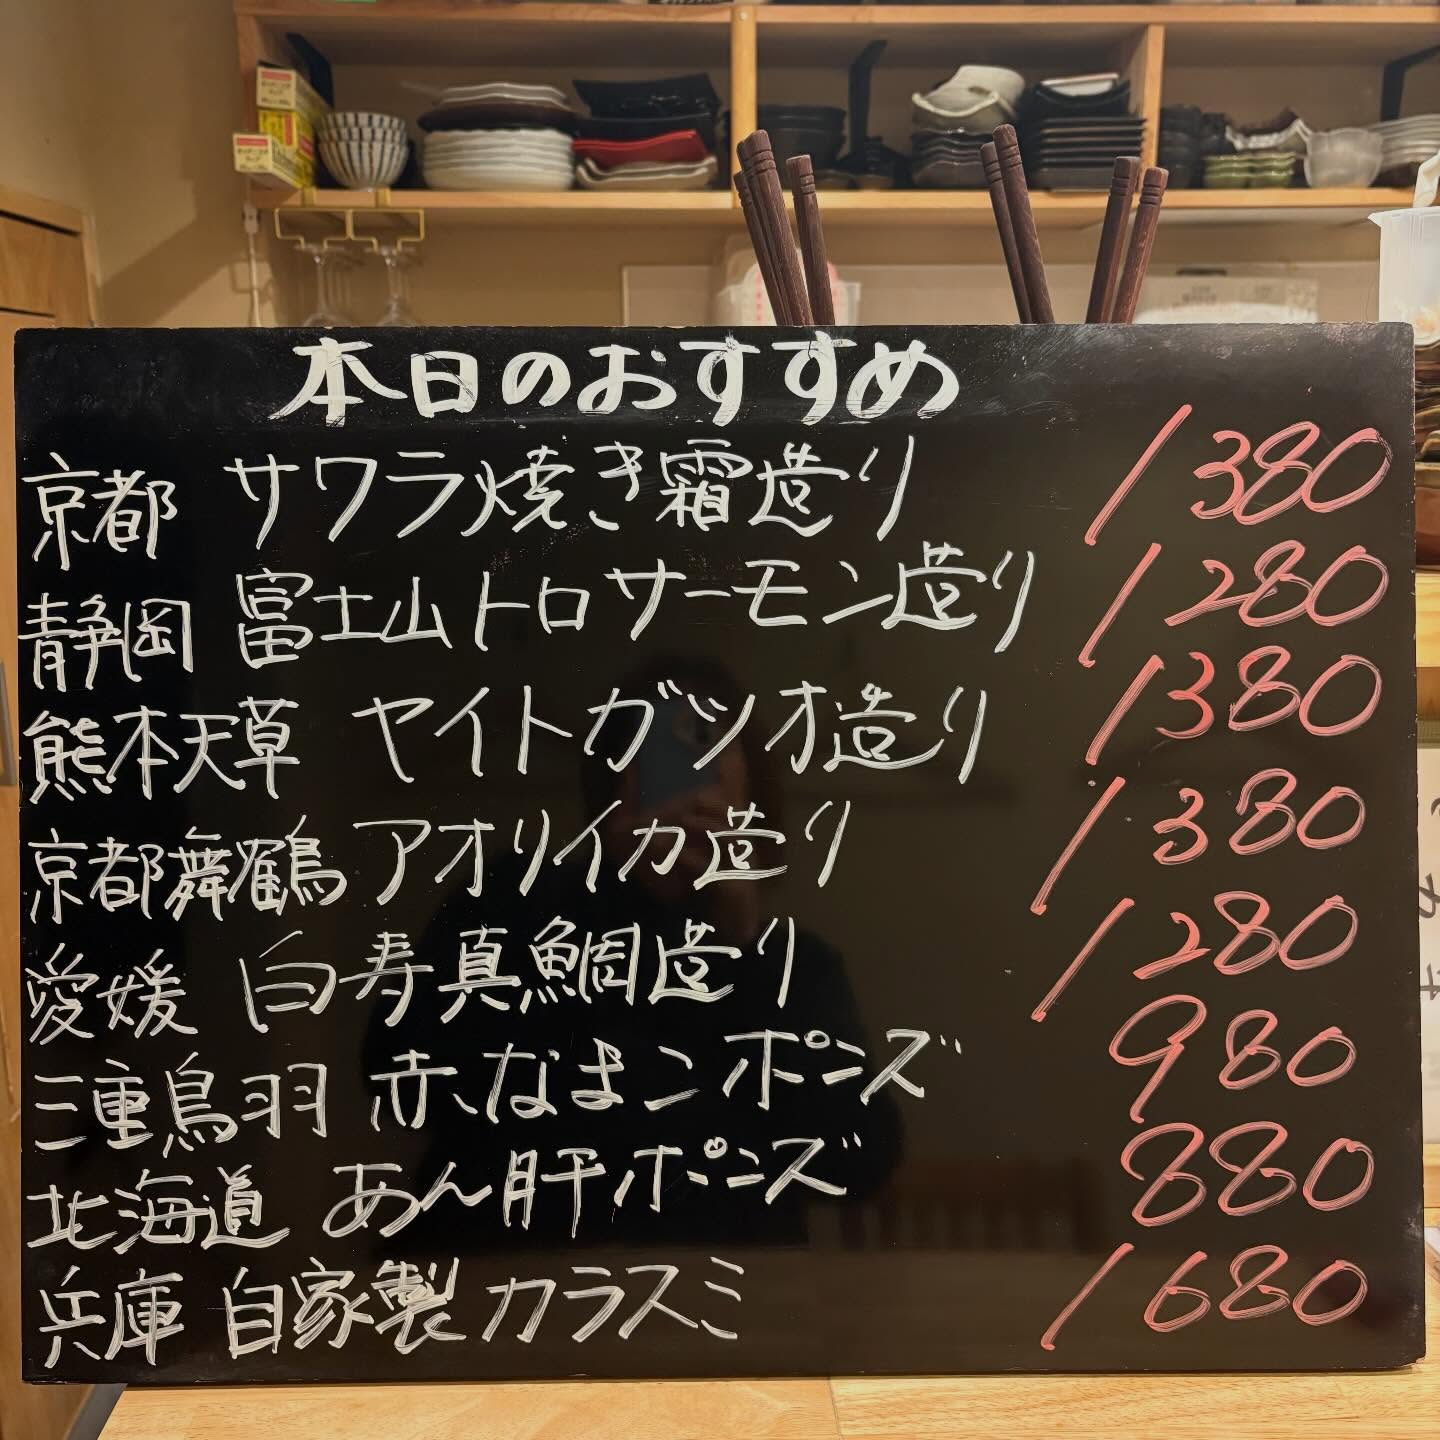 本日のおすすめ
京都 サワラ焼き霜造り 1380
静岡 富士山トロサーモン造り 1280
熊本天草 ヤイトガツオ造り 1380
京都舞鶴 アオリイカ造り 1380
愛媛 白寿真鯛造り 1280
三重鳥羽 赤なまこポンズ 980
北海道 あん肝ポンズ 880
兵庫 自家製カラスミ 1680